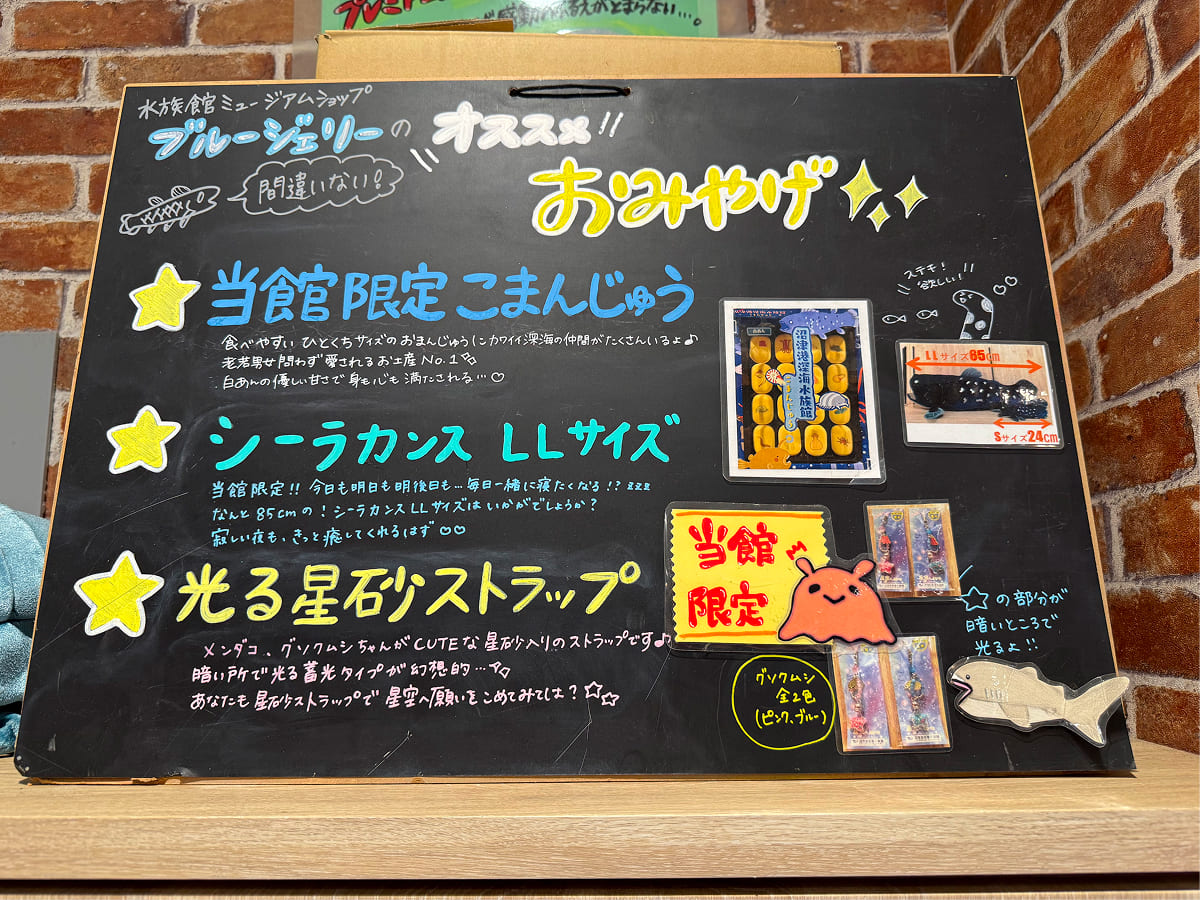 感動のふるえがとまらない…。
水族館ミュージアムショップ
ブルージェリーの
オススメ!!
おみやげ
間違いない!
当館限定こまんじゅう
食べやすい ひとくちサイズのおまんじゅうにカワイイ深海の仲間がたくさんいるよ♪
老若男女問わず愛されるお土産 No.1
白あんの優しい甘さで身も心も満たされる…♡
シーラカンス LLサイズ
当館限定!! 今日も明日も明後日も…毎日一緒に寝たくなる!? zzz
なんと85cmの!シーラカンスLLサイズはいかがでしょうか?
寂しい夜も、きっと癒してくれるはず♡♡
光る星砂ストラップ
メンダコ、グソクムシちゃんがCUTEな星砂入りのストラップです♪
暗い所で光る蓄光タイプが幻想的…
あなたも星砂ストラップで星空へ願いをこめてみては?☆☆
沼津港深海水族館
こまんじゅう
ステキ!
欲しい!
LLサイズ85cm
Sサイズ24cm
当館
限定
グソクムシ
全2色
(ピンク、ブルー)
☆の部分が
暗いところで
光るよ!!